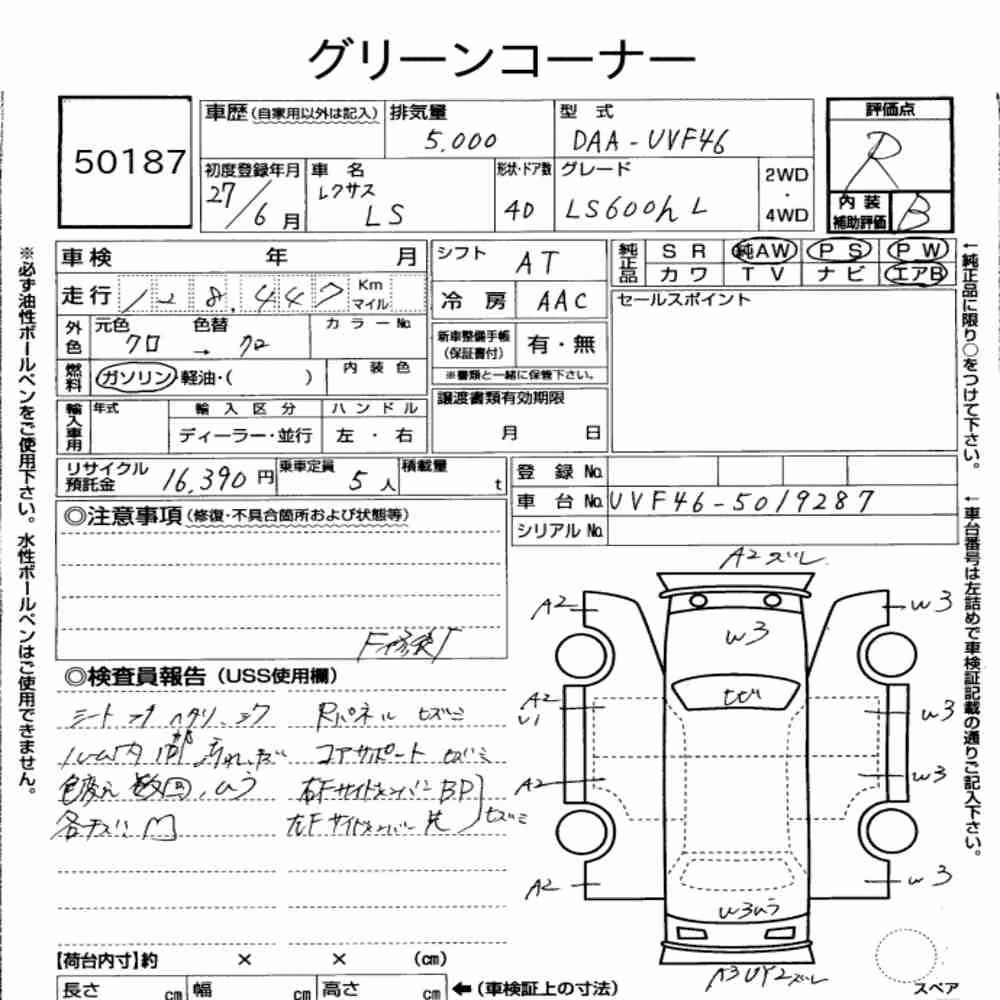 グリーンコーナー
50187
車歴(自家用以外は記入) 排気量 型式 評価点
5.000 DAA-UVF46 R
初度登録年月 車名 形状・ドア数 グレード 2WD・4WD
27/6月 レクサス LS 4D LS600hL
内装補助評価 B
車検 年 月 シフト AT
純正品 SR 純AW PS PW
カワ TV ナビ エアB
走行 128,447 Km マイル
冷房 AAC
セールスポイント
外色 元色 色替 カラーNo.
クロ → クロ
新車整備手帳(保証書付) 有・無
※書類と一緒に保管下さい。
燃料 ガソリン・軽油・( ) 内装色
譲渡書類有効期限
月 日
輸入車用 年式 輸入区分 ハンドル
ディーラー・並行 左・右
リサイクル預託金 16,390円 乗車定員 5人 積載量 t
登録No.
車台No. UVF46-5019287
シリアルNo.
◎注意事項(修復・不具合箇所および状態等)
◎検査員報告(USS使用欄)
Rパネル セズミ
コアサポート セズミ
右Fサイドメンバー BP
左Fサイドメンバー
A2ズレ
A2 W3
W3
A2
U1
W3
A2 W3
A2 W3
【荷台内寸】約 × × (cm)
長さ cm 幅 cm 高さ cm ←(車検証上の寸法)
スペア
※必ず油性ボールペンをご使用下さい。水性ボールペンはご使用できません。
←純正品に限り○をつけて下さい。
←車台番号は左詰めで車検証記載の通りご記入下さい。